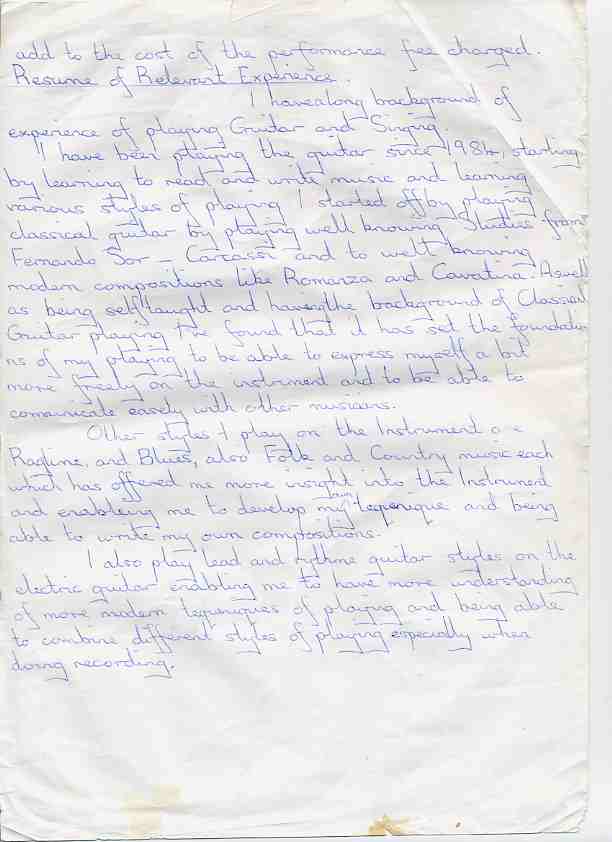 add to the cost of the performance free charged.
Resume of Relevant Experience.
I havealong background of
experience of playing Guitar and Singing.
I have been playing the guitar since 1984, starting
by learning to read and write music and learning
various styles of playing I started off by playing
classical guitar by playing well knowing Studies from
Fernando Sor - Carcassi and to well knowing
modern compositions like Romanza and Cavatina. Aswell
as being self taught and havingthe background of Classical
Guitar playing I've found that it has set the foundatio
ns of my playing to be able to express myself a bit
more freely on the instrment and to be able to
comunicate easely with other musicians.
Other styles I play on the Instrument are
Ragtime, and Blues, also Folk and Country music each
which has offered me more insight into the Instrument
and enableing me to develop my tequenique and being
able to write my own compositions.
I also play lead and rythme guitar styles on the
electric guitar enabling me to have more understanding
of more modern tequeniques of playing and being able
to combine different styles of playing especially when
doing recording.